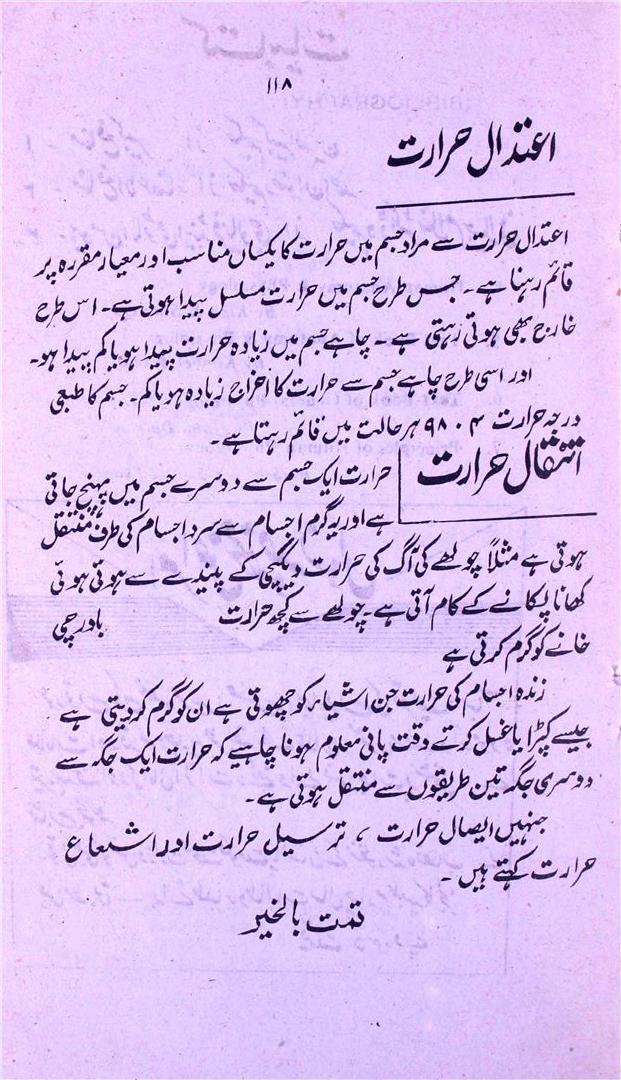 ۱۱۸
اعتدال حرارت
اعتدال حرارت سے مراد جسم میں حرارت کا یکساں مناسب اور معیار مقررہ پر
قائم رہنا ہے۔ جس طرح جسم میں حرارت مسلسل پیدا ہوتی ہے۔ اس طرح
خارج بھی ہوتی رہتی ہے۔ چاہے جسم میں زیادہ حرارت پیدا ہو یا کم پیدا ہو۔
اور اسی طرح چاہے جسم سے حرارت کا اخراج زیادہ ہو یا کم۔ جسم کا طبعی
درجہ حرارت ۹۸.۴ ہر حالت میں قائم رہتا ہے۔
انتقال حرارت
حرارت ایک جسم سے دوسرے جسم میں پہنچ جاتی
ہے اور یہ گرم اجسام سے سرد اجسام کی طرف منتقل
ہوتی ہے مثلاً چولھے کی آگ کی حرارت دیگچی کے پیندے سے ہوتی ہوئی
کھانا پکانے کے کام آتی ہے۔ چولھے سے کچھ حرارت باورچی
خانے کو گرم کرتی ہے
زندہ اجسام کی حرارت جن اشیاء کو چھوتی ہے ان کو گرم کر دیتی ہے
جیسے کپڑا یا غسل کرتے وقت پانی معلوم ہونا چاہیے کہ حرارت ایک جگہ سے
دوسری جگہ تین طریقوں سے منتقل ہوتی ہے۔
جنہیں ایصال حرارت ، ترسیل حرارت اور اشعاع
حرارت کہتے ہیں۔
تمت بالخیر